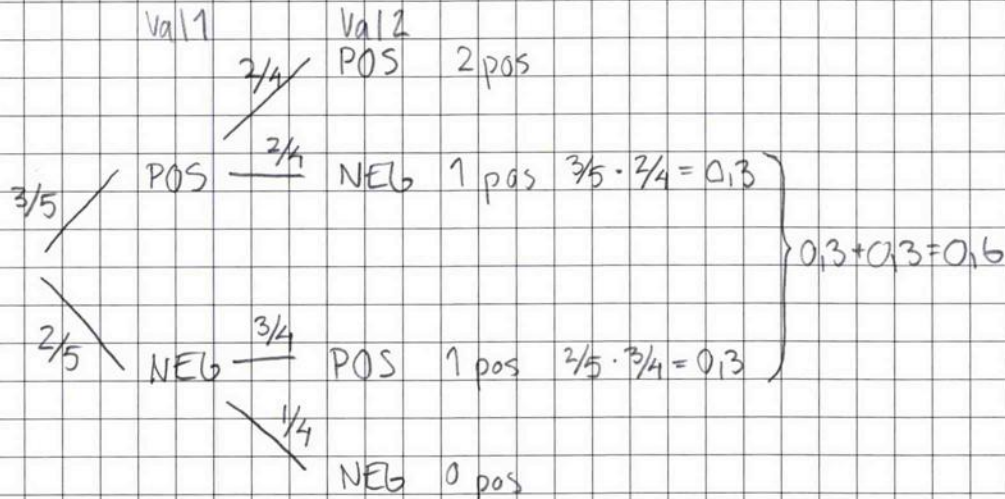 Val 1 Val 2
2/4 POS 2 pos
3/5 POS 2/4 NEG 1 pos 3/5 · 2/4 = 0,3
0,3+0,3=0,6
2/5 NEG 3/4 POS 1 pos 2/5 · 3/4 = 0,3
1/4 NEG 0 pos